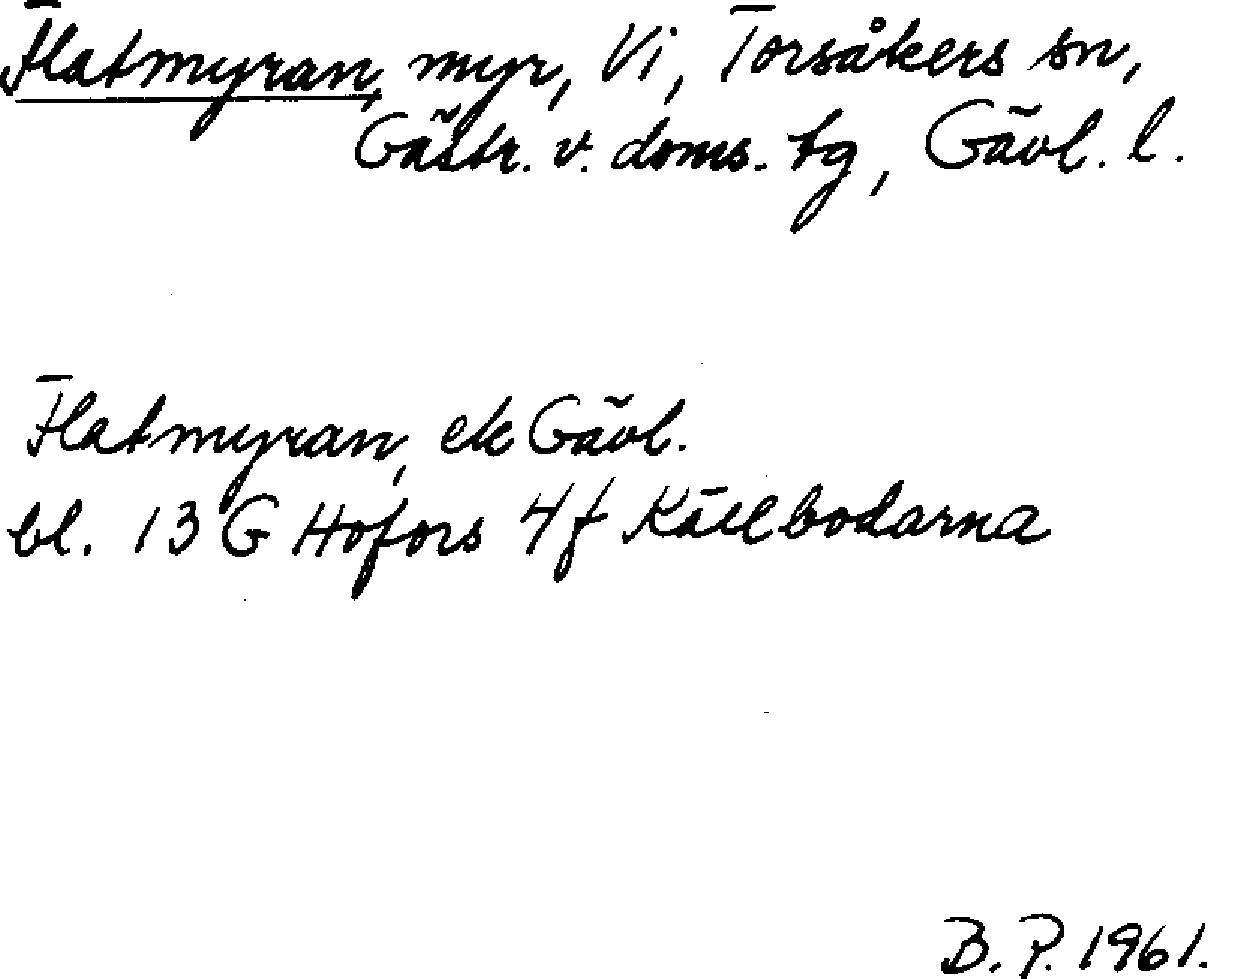 Flatmyran, myr, Vi, Torsåkers sn,
Gästr. v. doms. tg, Gävl. l.
Flatmyran, ek Gävl.
bl. 13 G Hofors 4f Källbodarna
B. P. 1961.